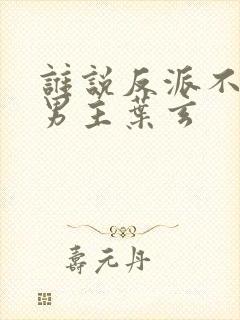 誰說反派不
男主葉玄
壽元丹